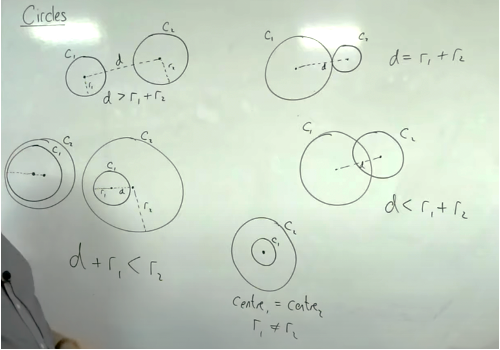 Circles
C₁
C₂
d
r₁
r₂
d > r₁ + r₂
C₁
C₂
d
d = r₁ + r₂
C₂
C₁
C₂
C₁
r₁
d
r₂
d + r₁ < r₂
C₁
C₂
d
d < r₁ + r₂
C₂
C₁
Centre₁ = Centre₂
r₁ ≠ r₂